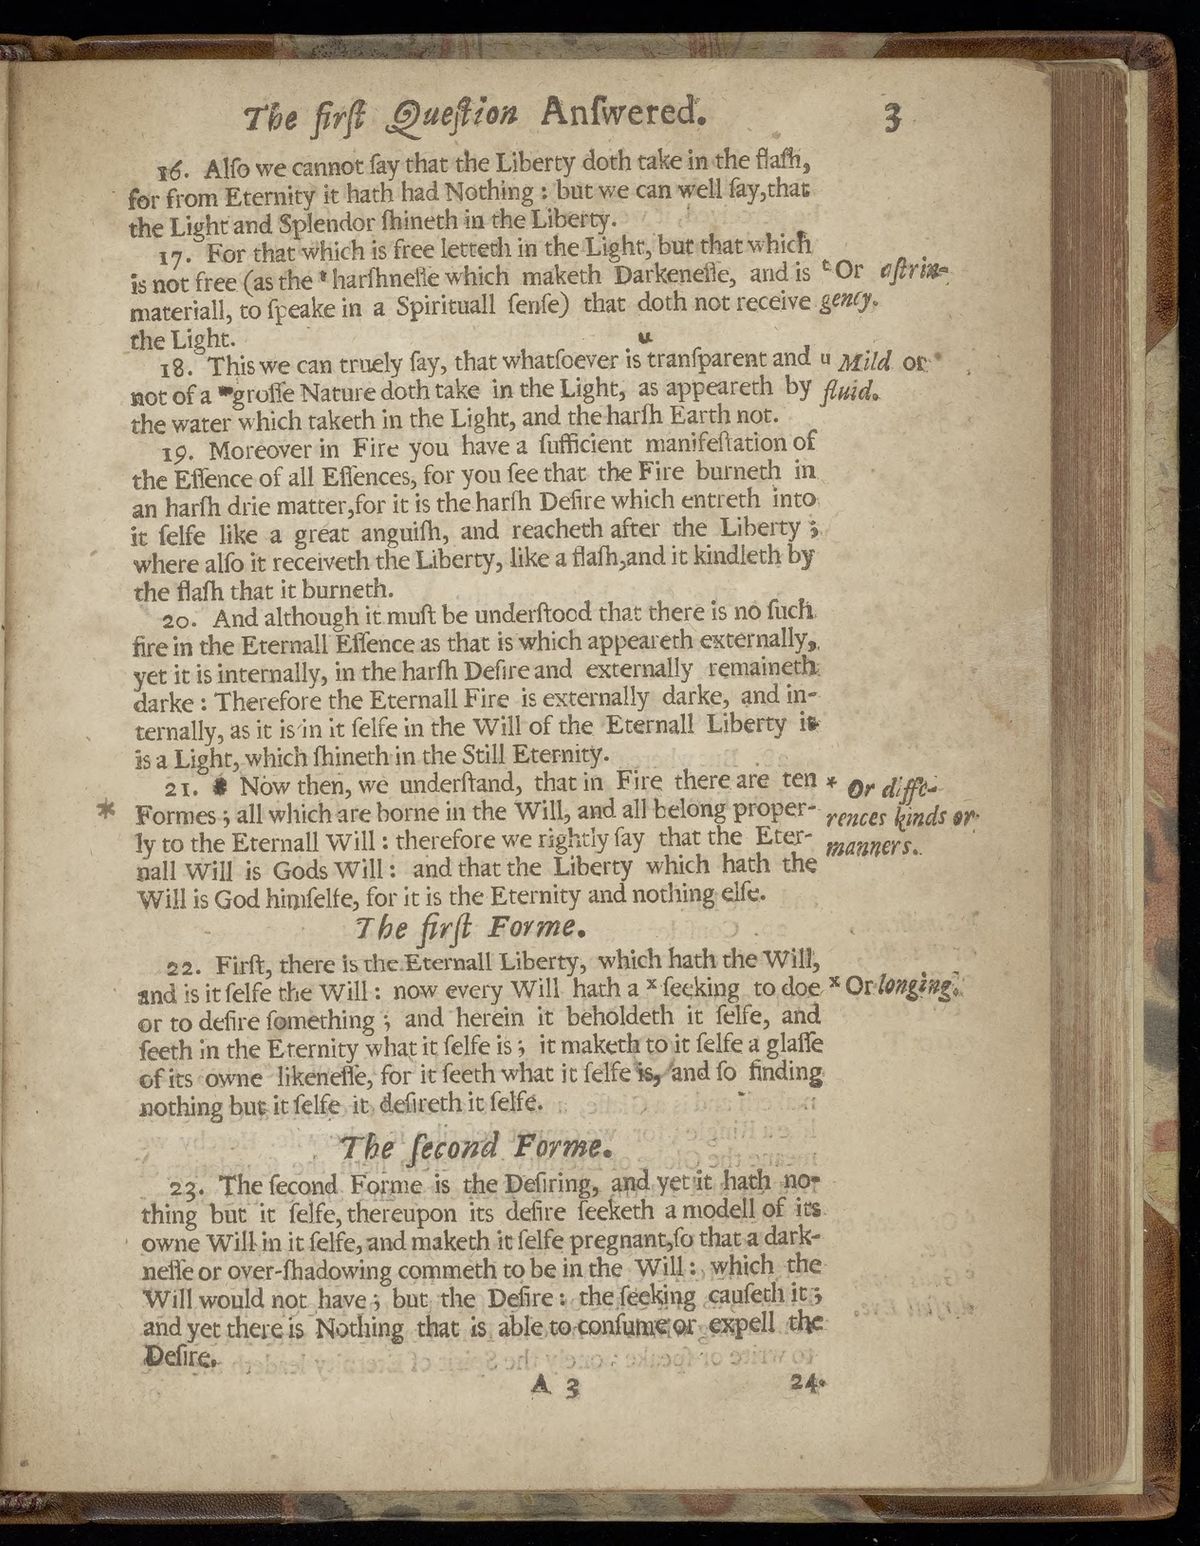 The firſt Queſtion Anſwered. 3
16. Alſo we cannot ſay that the Liberty doth take in the flaſh,
for from Eternity it hath had Nothing : but we can well ſay,that
the Light and Splendor ſhineth in the Liberty.
17. For that which is free letteth in the Light, but that which
is not free (as the ᵗ harſhneſſe which maketh Darkeneſſe, and is
materiall, to ſpeake in a Spirituall ſenſe) that doth not receive
the Light.
ᵗ Or aſtrin-
gency.
u
18. This we can truely ſay, that whatſoever is tranſparent and
not of a groſſe Nature doth take in the Light, as appeareth by
the water which taketh in the Light, and the harſh Earth not.
u Mild or
fluid.
19. Moreover in Fire you have a ſufficient manifeſtation of
the Eſſence of all Eſſences, for you ſee that the Fire burneth in
an harſh drie matter,for it is the harſh Deſire which entreth into
it ſelfe like a great anguiſh, and reacheth after the Liberty ;
where alſo it receiveth the Liberty, like a flaſh,and it kindleth by
the flaſh that it burneth.
20. And although it muſt be underſtood that there is no ſuch
fire in the Eternall Eſſence as that is which appeareth externally,
yet it is internally, in the harſh Deſire and externally remaineth
darke : Therefore the Eternall Fire is externally darke, and in-
ternally, as it is in it ſelfe in the Will of the Eternall Liberty it
is a Light, which ſhineth in the Still Eternity.
21. * Now then, we underſtand, that in Fire there are ten
* Formes ; all which are borne in the Will, and all belong proper-
ly to the Eternall Will : therefore we rightly ſay that the Eter-
nall Will is Gods Will : and that the Liberty which hath the
Will is God himſelfe, for it is the Eternity and nothing elſe.
* Or diffe-
rences kinds or
manners.
The firſt Forme.
22. Firſt, there is the Eternall Liberty, which hath the Will,
and is it ſelfe the Will : now every Will hath a ˣ ſeeking to doe
or to deſire ſomething ; and herein it beholdeth it ſelfe, and
ſeeth in the Eternity what it ſelfe is ; it maketh to it ſelfe a glaſſe
of its owne likeneſſe, for it ſeeth what it ſelfe is, and ſo finding
nothing but it ſelfe it deſireth it ſelfe.
ˣ Or longing.
The ſecond Forme.
23. The ſecond Forme is the Deſiring, and yet it hath no-
thing but it ſelfe, thereupon its deſire ſeeketh a modell of its
owne Will in it ſelfe, and maketh it ſelfe pregnant,ſo that a dark-
neſſe or over-ſhadowing commeth to be in the Will : which the
Will would not have ; but the Deſire : the ſeeking cauſeth it ;
and yet there is Nothing that is able to conſume or expell the
Deſire.
A 3 24.